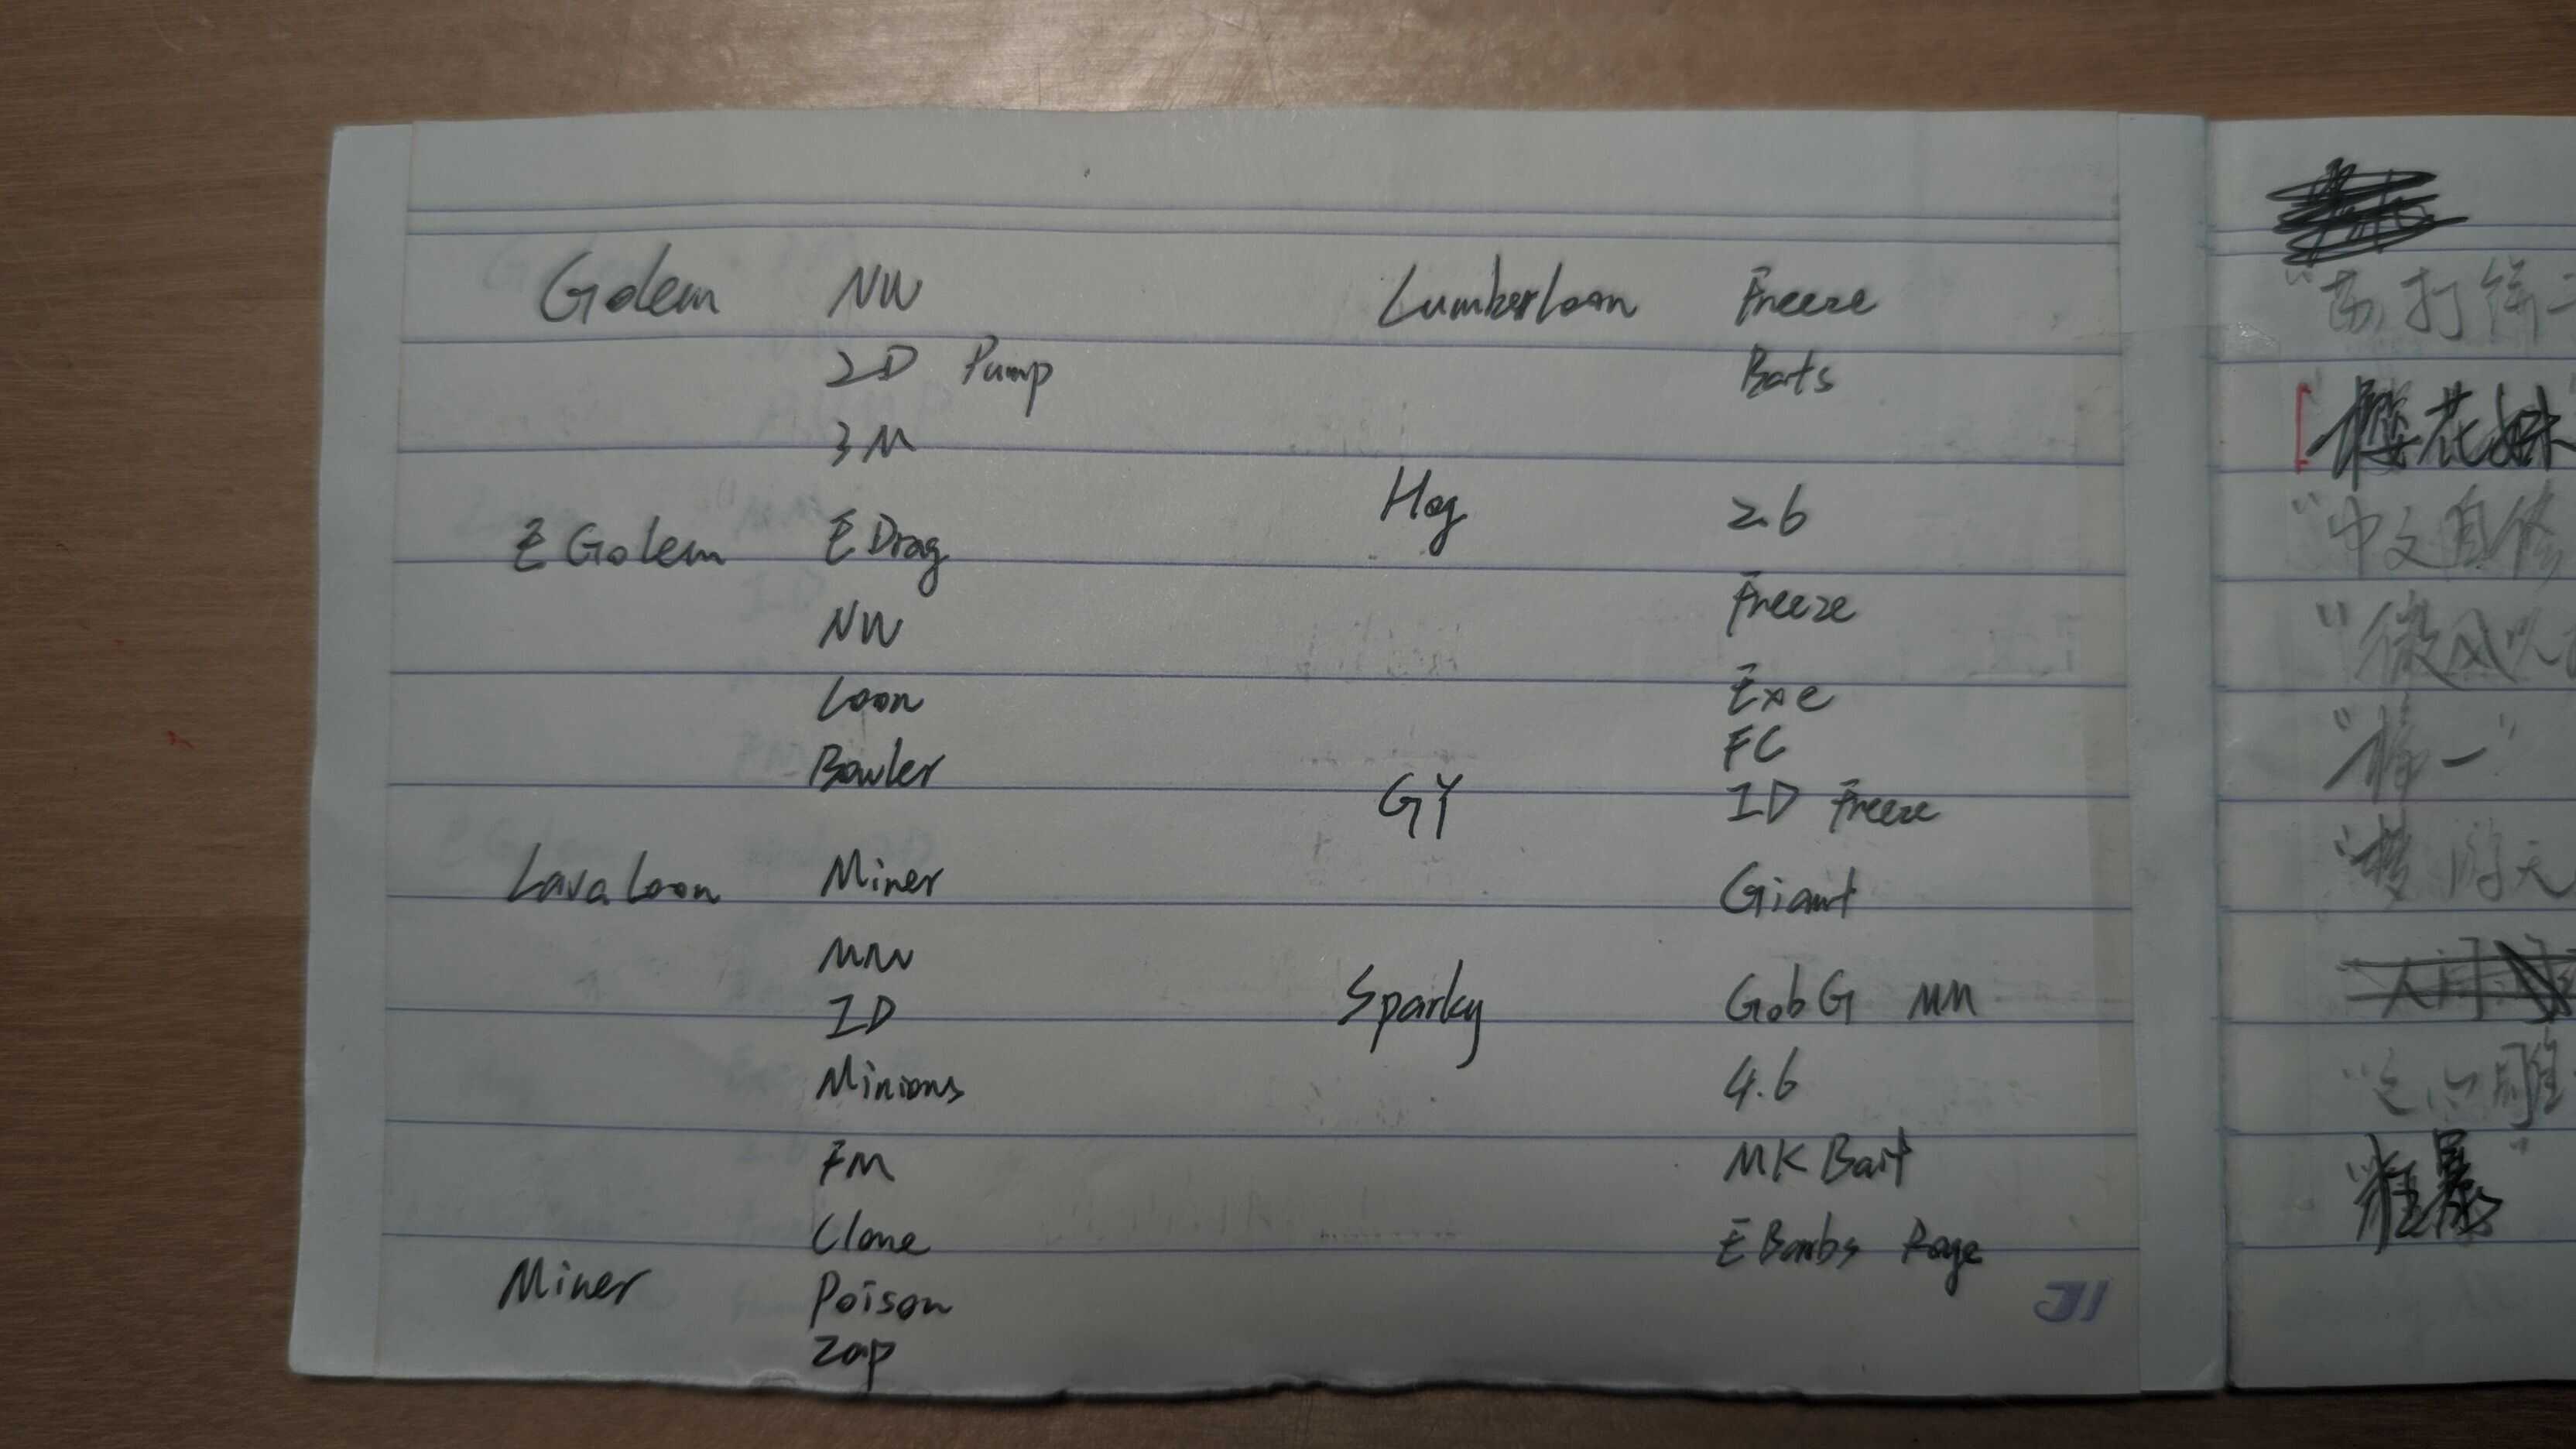 Golem NW
2D Pump
3M
E Golem E Drag
NW
Loon
Bowler
Lava Loon Miner
MM
ID
Minions
FM
Clone
Miner Poison
Zap
Lumberloon Freeze
Barts
Hog 2.6
Freeze
Exe
FC
GY ID Freeze
Giant
Sparky GobG MM
4.6
MK Bait
E Barbs Rage
"苏打饼
樱花妹
"中文自修
"微风
"
"梦游天

"
"粗暴"